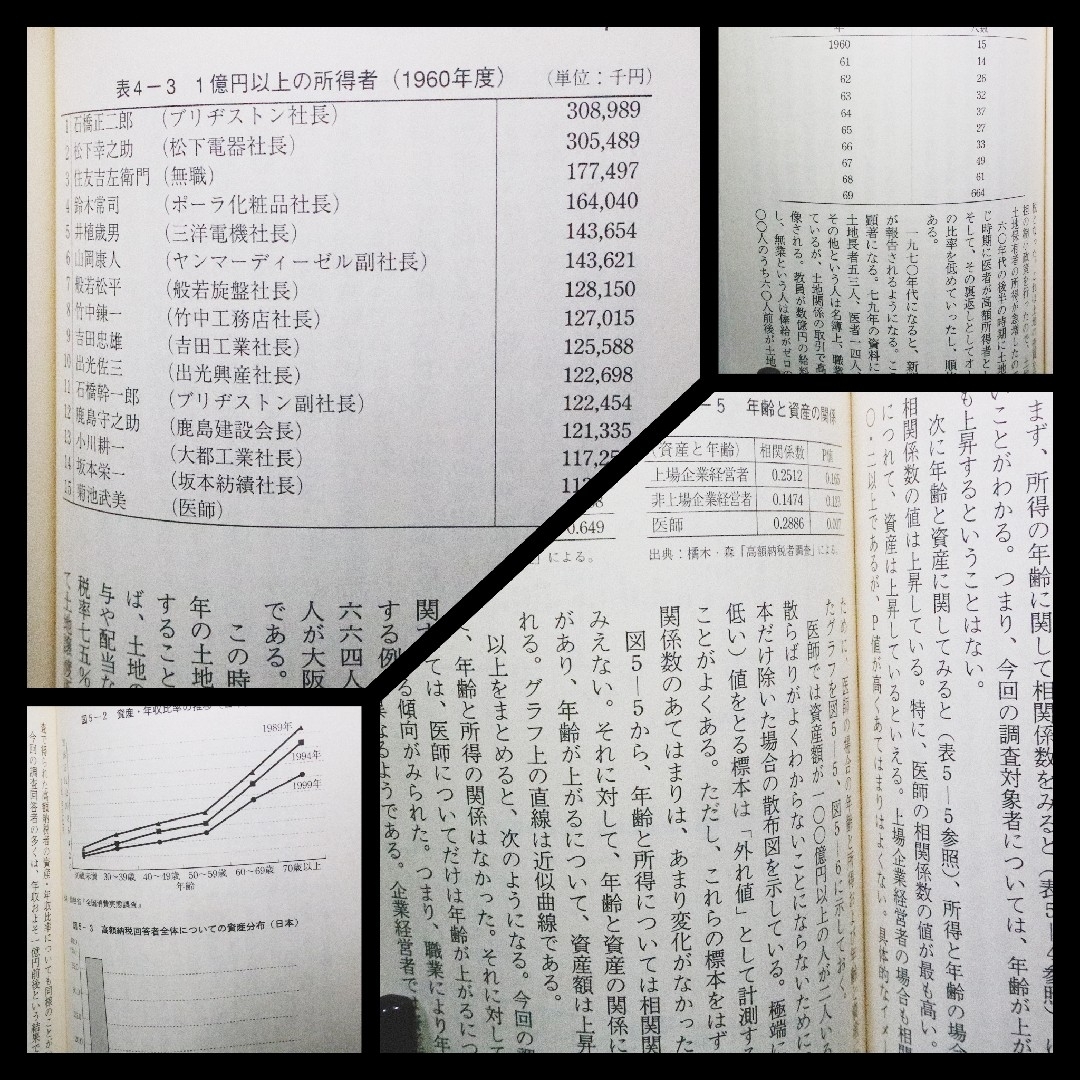 表4－3 1億円以上の所得者（1960年度） （単位：千円）
1 石橋正二郎 （ブリヂストン社長） 308,989
2 松下幸之助 （松下電器社長） 305,489
3 住友吉左衛門 （無職） 177,497
4 鈴木常司 （ポーラ化粧品社長） 164,040
5 井植歳男 （三洋電機社長） 143,654
6 山岡康人 （ヤンマーディーゼル副社長） 143,621
7 般若松平 （般若旋盤社長） 128,150
8 竹中錬一 （竹中工務店社長） 127,015
9 吉田忠雄 （吉田工業社長） 125,588
10 出光佐三 （出光興産社長） 122,698
11 石橋幹一郎 （ブリヂストン副社長） 122,454
12 鹿島守之助 （鹿島建設会長） 121,335
13 小川耕一 （大都工業社長） 117,2
14 坂本栄一 （坂本紡績社長） 11
15 菊池武美 （医師）
0.649
」による。
関
する例
人が大阪
六六四人
である。
この時
年の土地
すること
ば、土地の
与や配当な
税率七五％
年
1960 15
61 14
62 26
63 32
64 37
65 27
66 33
67 49
68 61
69 664
六〇年代の後半の時期に土地
じ時期に医者が高額所得者と
そして、その裏返しとしてオー
の比率を低めていったし、順
ある。
一九七〇年代になると、新
が報告されるようになる。こ
顕著になる。七九年の資料に
土地長者五三人、医者一四人、
その他という人は名簿上、職業
ているが、土地関係の取引で高
像される。教員が数億円の給料
し、無業という人は俸給がゼロの
〇〇人のうち六〇人前後が土地
－5 年齢と資産の関係
（資産と年齢） 相関係数 P値
上場企業経営者 0.2512
非上場企業経営者 0.1474
医師 0.2886
出典：橘木・森「高額納税者調査」による。
まず、所得の年齢に関して相関係数をみると（表5－4参照）
いことがわかる。つまり、今回の調査対象者については、年齢が上が
も上昇するということはない。
次に年齢と資産に関してみると（表5－5参照）、所得と年齢の場合
相関係数の値は上昇している。特に、医師の相関係数の値が最も高い。
につれて、資産は上昇しているといえる。上場企業経営者の場合も相関
〇・二以上であるが、P値が高くあてはまりはよくない。具体的なイメー
たグラフを図5－5、図5－6に示しておく。
医師では資産額が一〇〇億円以上の人が二人いる
散らばりがよくわからないことにならないために
本だけ除いた場合の散布図を示している。極端に
低い）値をとる標本は「外れ値」として計測する
ことがよくある。ただし、これらの標本をはず
関係数のあてはまりは、あまり変化がなかった
図5－5から、年齢と所得については相関関
みえない。それに対して、年齢と資産の関係に
があり、年齢が上がるについて、資産額は上昇
れる。グラフ上の直線は近似曲線である。
以上をまとめると、次のようになる。今回の調
、年齢と所得の関係はなかった。それに対して
ては、医師についてだけは年齢が上がるにつ
る傾向がみられた。つまり、職業により年
なるようである。企業経営者では
図5－2 資産・年収比率の推移
1989年
1994年
1999年
30～39歳 40～49歳 50～59歳 60～69歳 70歳以上
年齢
『全国消費実態調査』
図5－3 高額納税回答者全体についての資産分布（日本）
今回の調査回答者の多くは、年収およそ一億円前後という結果で